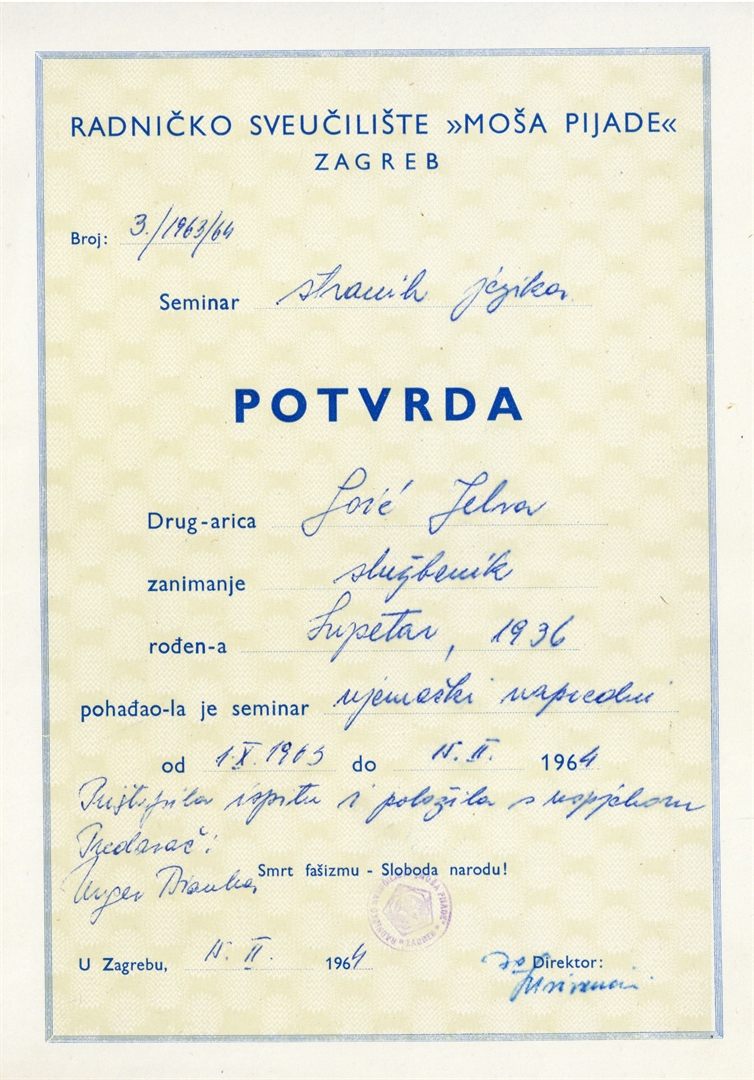 RADNIČKO SVEUČILIŠTE »MOŠA PIJADE«
ZAGREB
Broj: 3./1963/64
Seminar stranih jezika
POTVRDA
Drug-arica Jelva
zanimanje službenik
rođen-a Supetar, 1936
pohađao-la je seminar njemački napredni
od 1.X.1963 do 15.II. 1964
Pristupila ispitu i položila s uspjehom
Predavač:
Unger Bianka
Smrt fašizmu - Sloboda narodu!
RADNIČKO SVEUČILIŠTE "MOŠA PIJADE"
U Zagrebu, 15. II. 1964
Direktor: